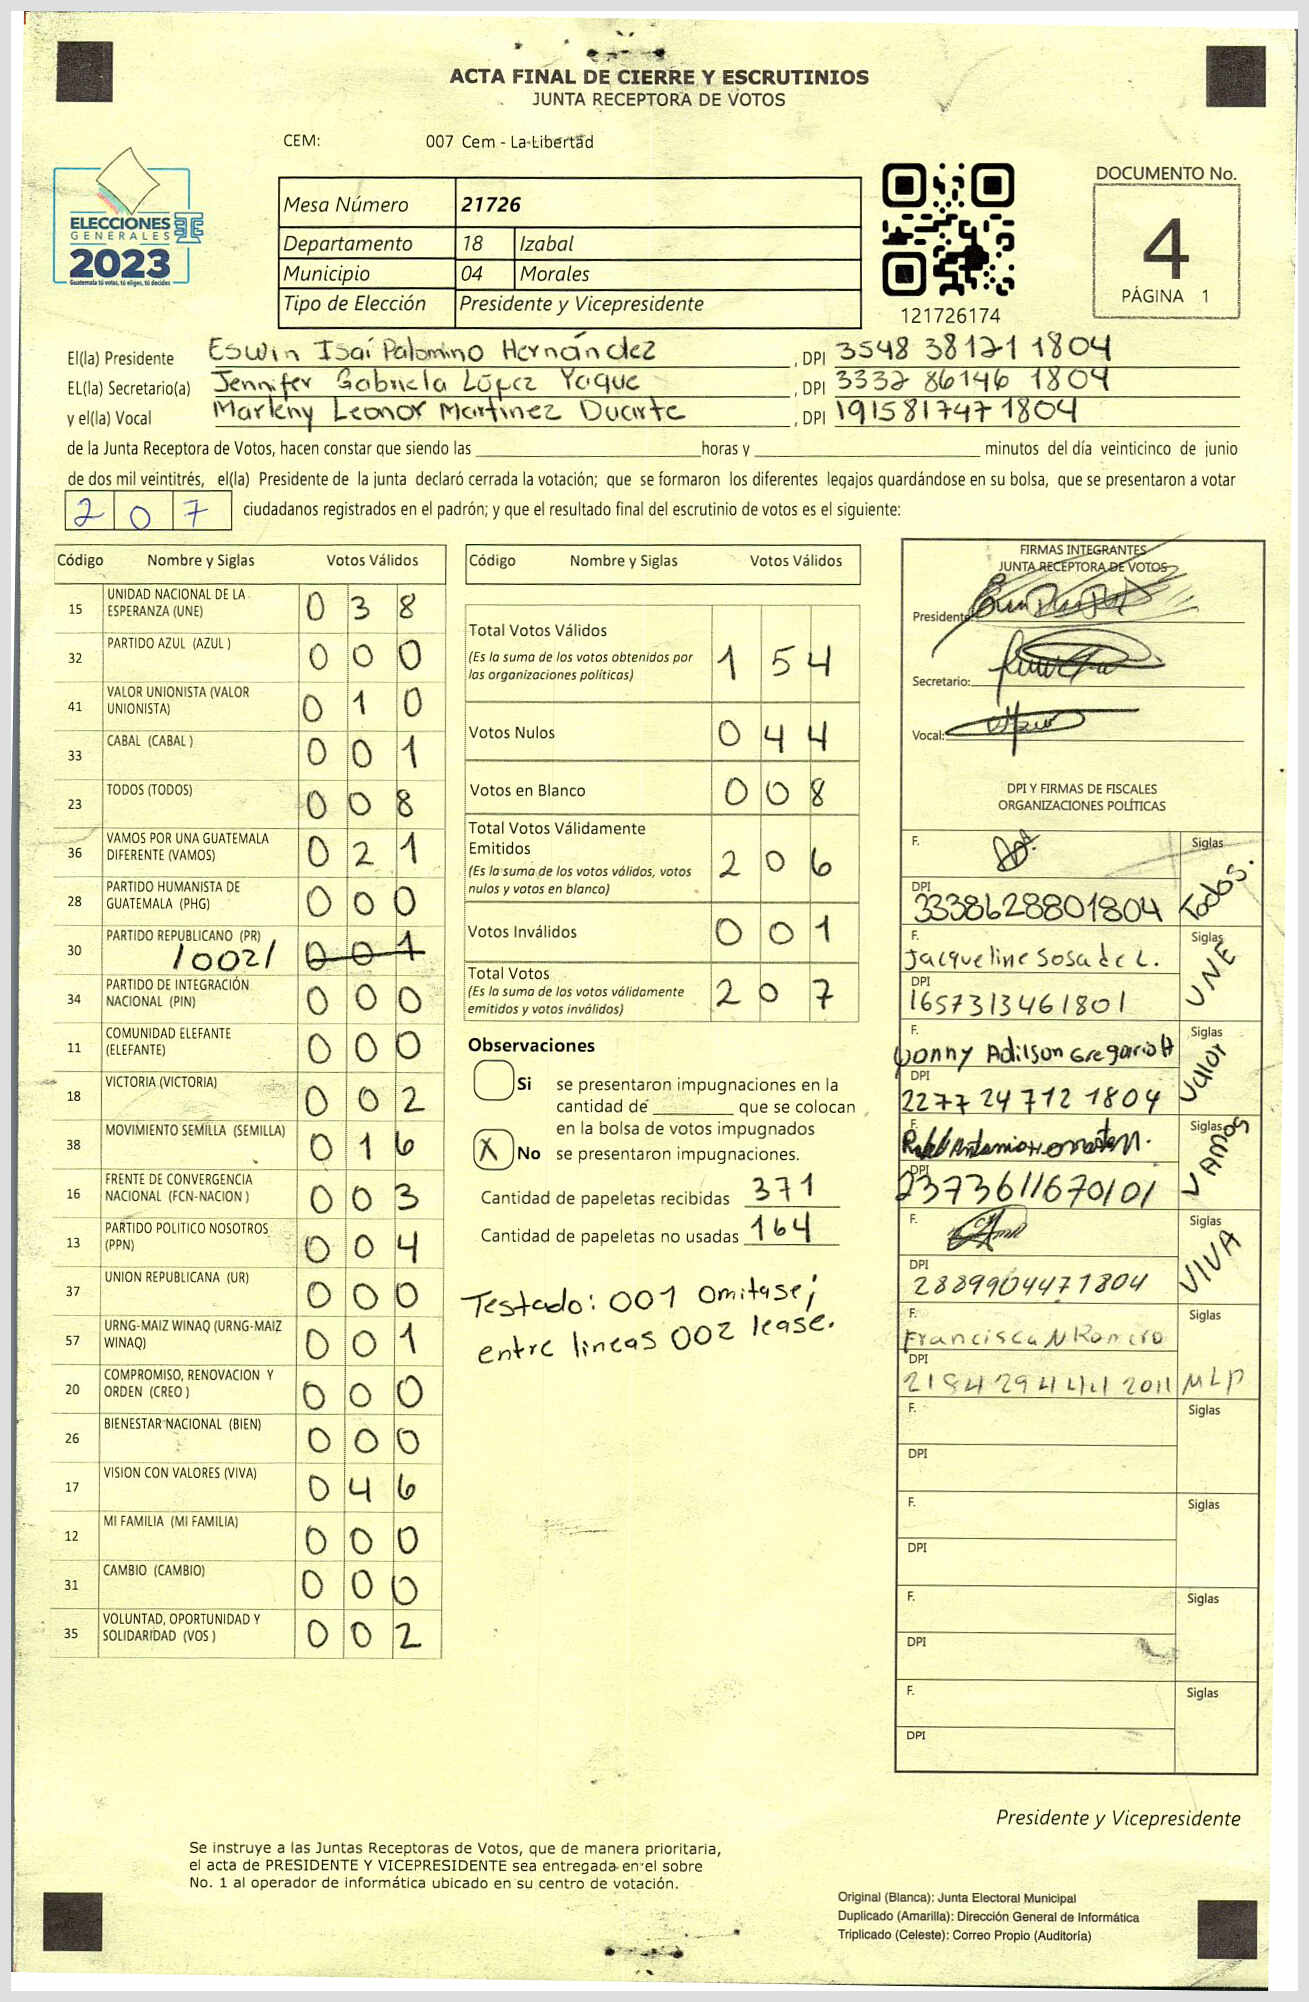 ACTA FINAL DE CIERRE Y ESCRUTINIOS
JUNTA RECEPTORA DE VOTOS
CEM: 007 Cem - La Libertad
ELECCIONES
GENERALES
2023
Guatemala tú votas, tú eliges, tú decides
Mesa Número 21726
Departamento 18 Izabal
Municipio 04 Morales
Tipo de Elección Presidente y Vicepresidente
121726174
DOCUMENTO No.
4
PÁGINA 1
El(la) Presidente Eswin Isaí Palomino Hernández , DPI 3548 38121 1804
EL(la) Secretario(a) Jennifer Gabriela López Yaque , DPI 3332 86146 1804
y el(la) Vocal Marleny Leonor Martinez Duarte , DPI 1915817471804
de la Junta Receptora de Votos, hacen constar que siendo las horas y minutos del día veinticinco de junio
de dos mil veintitrés, el(la) Presidente de la junta declaró cerrada la votación; que se formaron los diferentes legajos quardándose en su bolsa, que se presentaron a votar
2 0 7 ciudadanos registrados en el padrón; y que el resultado final del escrutinio de votos es el siguiente:
Código Nombre y Siglas Votos Válidos
15 UNIDAD NACIONAL DE LA ESPERANZA (UNE) 0 3 8
32 PARTIDO AZUL (AZUL ) 0 0 0
41 VALOR UNIONISTA (VALOR UNIONISTA) 0 1 0
33 CABAL (CABAL ) 0 0 1
23 TODOS (TODOS) 0 0 8
36 VAMOS POR UNA GUATEMALA DIFERENTE (VAMOS) 0 2 1
28 PARTIDO HUMANISTA DE GUATEMALA (PHG) 0 0 0
30 PARTIDO REPUBLICANO (PR) /002/ 0 0 1
34 PARTIDO DE INTEGRACIÓN NACIONAL (PIN) 0 0 0
11 COMUNIDAD ELEFANTE (ELEFANTE) 0 0 0
18 VICTORIA (VICTORIA) 0 0 2
38 MOVIMIENTO SEMILLA (SEMILLA) 0 1 6
16 FRENTE DE CONVERGENCIA NACIONAL (FCN-NACION ) 0 0 3
13 PARTIDO POLITICO NOSOTROS (PPN) 0 0 4
37 UNION REPUBLICANA (UR) 0 0 0
57 URNG-MAIZ WINAQ (URNG-MAIZ WINAQ) 0 0 1
20 COMPROMISO, RENOVACION Y ORDEN (CREO ) 0 0 0
26 BIENESTAR NACIONAL (BIEN) 0 0 0
17 VISION CON VALORES (VIVA) 0 4 6
12 MI FAMILIA (MI FAMILIA) 0 0 0
31 CAMBIO (CAMBIO) 0 0 0
35 VOLUNTAD, OPORTUNIDAD Y SOLIDARIDAD (VOS ) 0 0 2
Código Nombre y Siglas Votos Válidos
Total Votos Válidos 1 5 4
(Es la suma de los votos obtenidos por
las organizaciones políticas)
Votos Nulos 0 4 4
Votos en Blanco 0 0 8
Total Votos Válidamente
Emitidos 2 0 6
(Es la suma de los votos válidos, votos
nulos y votos en blanco)
Votos Inválidos 0 0 1
Total Votos 2 0 7
(Es la suma de los votos válidamente
emitidos y votos inválidos)
Observaciones
Si se presentaron impugnaciones en la
cantidad de que se colocan
en la bolsa de votos impugnados
X No se presentaron impugnaciones.
Cantidad de papeletas recibidas 371
Cantidad de papeletas no usadas 164
Testado: 001 omitase;
entre lineas 002 lease.
FIRMAS INTEGRANTES
JUNTA RECEPTORA DE VOTOS
Presidente:
Secretario:
Vocal:
DPI Y FIRMAS DE FISCALES
ORGANIZACIONES POLÍTICAS
F. Siglas Todos.
DPI 3338628801804
F. Jacqueline Sosa de L. Siglas UNE
DPI 1657313461801
F. Yonny Adilson Gregorio H Siglas Valor
DPI 2277 24712 1804
F. Siglas VAMOS
DPI 2373611670101
F. Siglas VIVA
DPI 2889904471804
F. Francisca N Romero Siglas MLP
DPI 2184 29444 2011
F. Siglas
DPI
F. Siglas
DPI
F. Siglas
DPI
F. Siglas
DPI
Presidente y Vicepresidente
Se instruye a las Juntas Receptoras de Votos, que de manera prioritaria,
el acta de PRESIDENTE Y VICEPRESIDENTE sea entregada en el sobre
No. 1 al operador de informática ubicado en su centro de votación.
Original (Blanca): Junta Electoral Municipal
Duplicado (Amarilla): Dirección General de Informática
Triplicado (Celeste): Correo Propio (Auditoría)